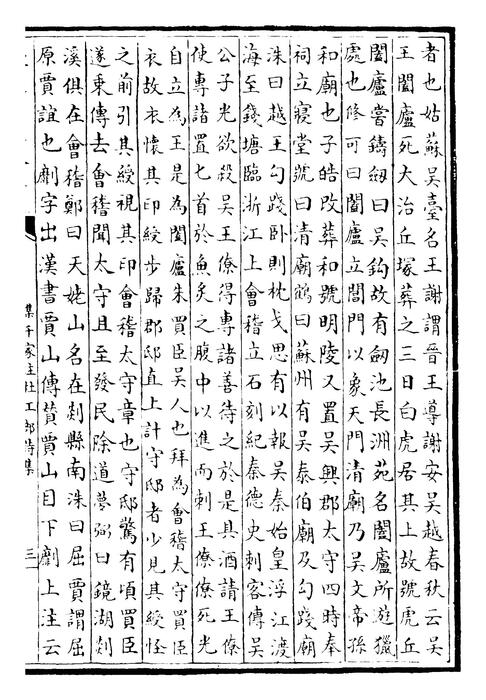 者也姑蘇吳臺名王謝謂晉王導謝安吳越春秋云吳
王闔廬死大治丘塚葬之三日白虎居其上故號虎丘
闔廬嘗鑄劒曰吳鈎故有劒池長洲苑名闔廬所遊獵
處也修可曰闔廬立閶門以象天門清廟乃吳文帝孫
和廟也子皓改葬和號明陵又置吳興郡太守四時奉
祠立寢堂號曰清廟鶴曰蘇州有吳泰伯廟及勾踐廟
洙曰越王勾踐卧則枕戈思有以報吳秦始皇浮江渡
海至錢塘臨浙江上會稽立石刻紀秦德史刺客傳吳
公子光欲殺吳王僚得專諸善待之於是具酒請王僚
使專諸置匕首於魚炙之腹中以進而刺王僚僚死光
自立為王是為闔廬朱買臣吳人也拜為會稽太守買臣
衣故衣懷其印綬步歸郡邸直上計守邸者少見其綬怪
之前引其綬視其印會稽太守章也守邸驚有頃買臣
遂乘傳去會稽聞太守且至發民除道夢弼曰鏡湖剡
溪俱在會稽鄭曰天姥山名在剡縣南洙曰屈賈謂屈
原賈誼也劘字出漢書賈山傳贊賈山自下劘上注云
集千家注杜工部詩集
三